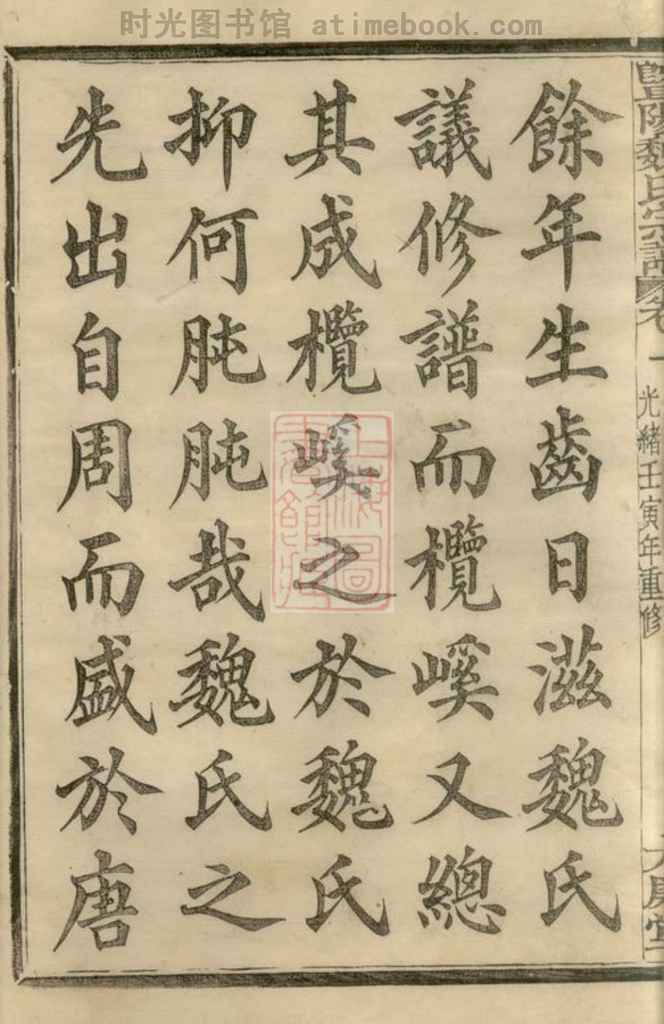 时光图书馆 atimebook.com
暨陽魏氏宗譜 卷一 光緒壬寅年重修
餘年生齒日滋魏氏
議修譜而欖嵠又總
其成欖嵠之於魏氏
抑何肫肫哉魏氏之
先出自周而盛於唐